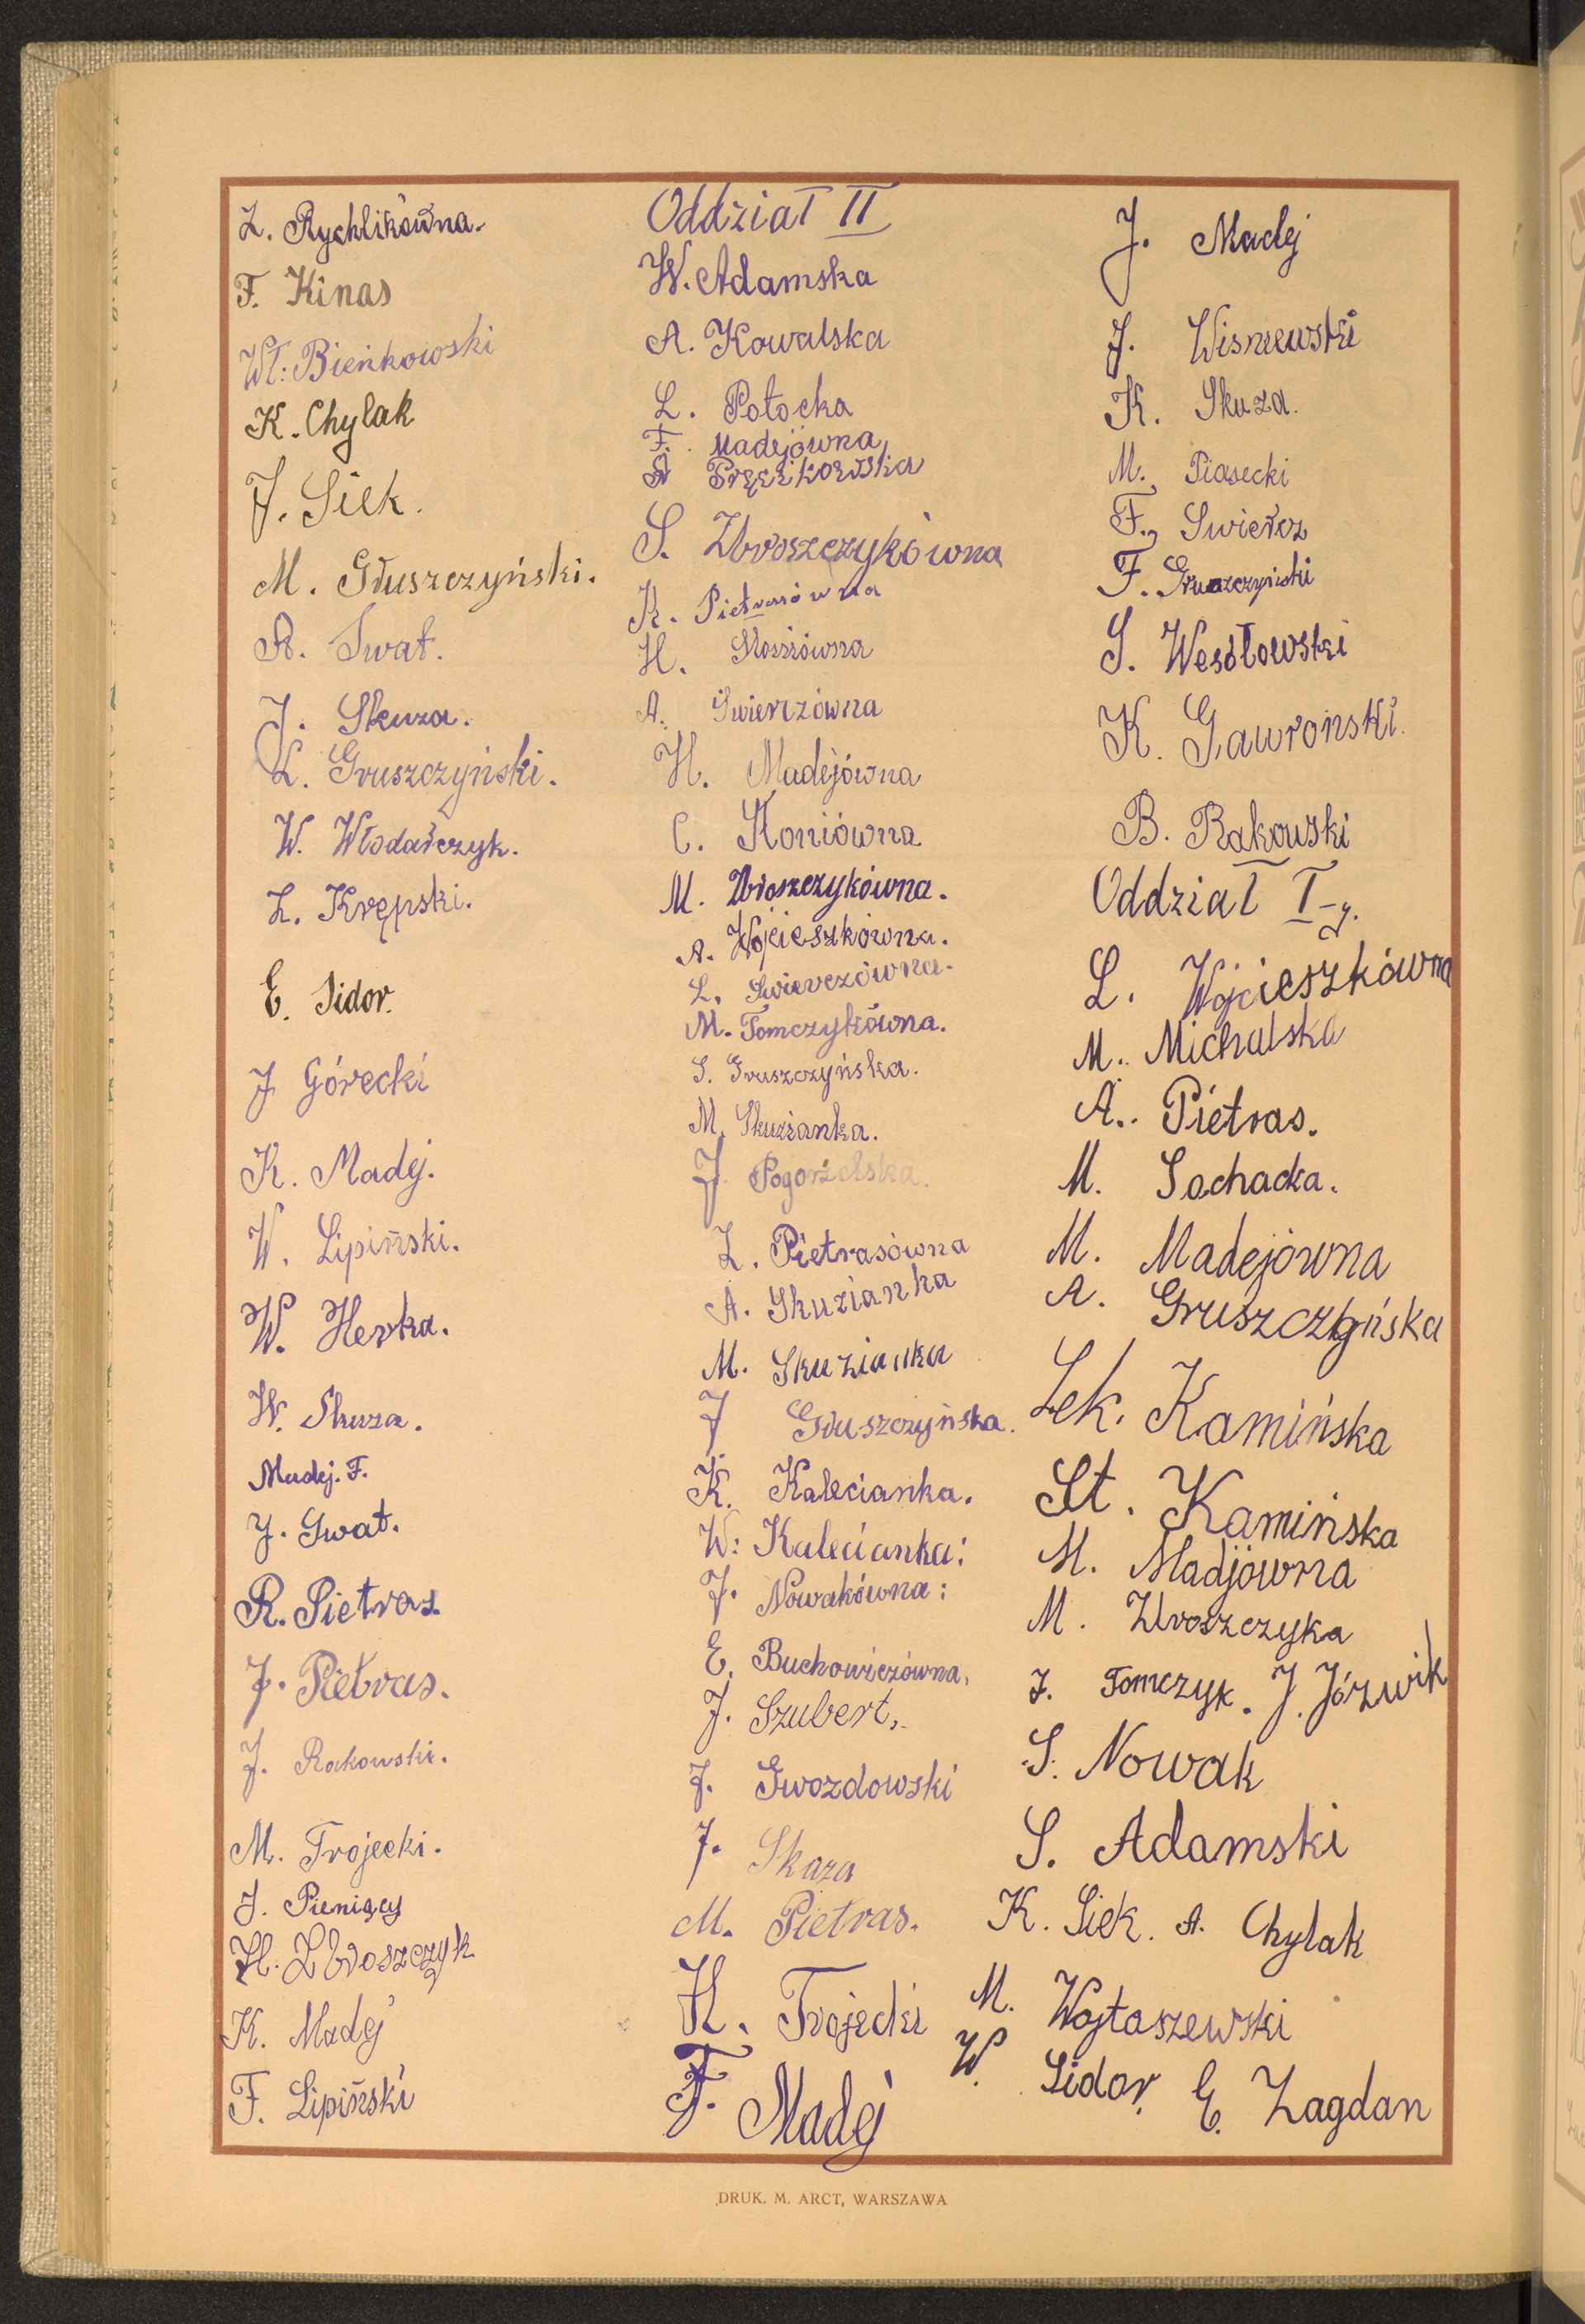 Z. Rychlikówna.
F. Kinas
Wł: Bieńkowski
K. Chylak
J. Siek.
M. Gruszczyński.
A. Swat.
J. Skuza.
L. Gruszczyński.
W. Włodarczyk.
Z. Krępski.
E. Sidor.
J Górecki
K. Madej.
W. Lipiński.
W. Herka.
W. Skuza.
Madej. F.
J. Gwat.
R. Pietras.
J. Pietras.
J. Rakowski.
M. Trojecki.
J. Pieniący
H. Zbroszczyk
K. Madej
F. Lipiński
Oddział II
W. Adamska
A. Kowalska
L. Potocka
F. Madejówna
A Pręczkowska
S. Zbroszczykówna
K. Pietrasówna
H.
A. Świerzówna
H. Madejówna
C. Koniówna
M. Zbroszczykówna.
A. Wojcieszkówna.
L. Swierczówna.
M. Tomczykówna.
S. Gruszczyńska.
M. Skuzianka.
J Pogorzelska.
Z. Pietrasówna
A. Skuzianka
M. Skuzianka
J Gruszczyńska.
K. Kalecianka.
W: Kalecianka:
J. Nowakówna:
E. Buchowiczówna,
J. Szubert,
J. Gwozdowski
J. Skaza
M. Pietras.
H. Trojecki
F. Madej
J. Madej
J. Wisniewski
K. Skuza.
M. Piasecki
F., Swiercz
F. Gruszczyński
S. Wesołowski
K. Gawroński.
B. Rakowski
Oddział I-y.
L. Wojcieszkówna
M. Michalska
A. Pietras.
M. Sochacka.
M. Madejówna
A. Gruszczyńska
Lek. Kamińska
St. Kamińska
M. Madjówna
M. Zbroszczyka
J. Tomczyk. J. Józwik
S. Nowak
S. Adamski
K. Siek. A. Chylak
M. Wojtaszewski
W. Sidor. E. Zagdan
DRUK. M. ARCT, WARSZAWA